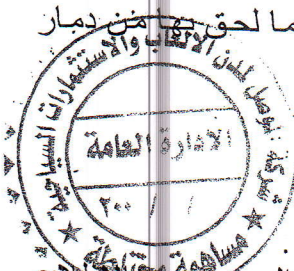 ما لحق بها من دمار
شركة الموصل لمدن الالعاب والاستثمارات السياحية
الادارة العامة
٢٠٠ / /
مساهمة مختلطة